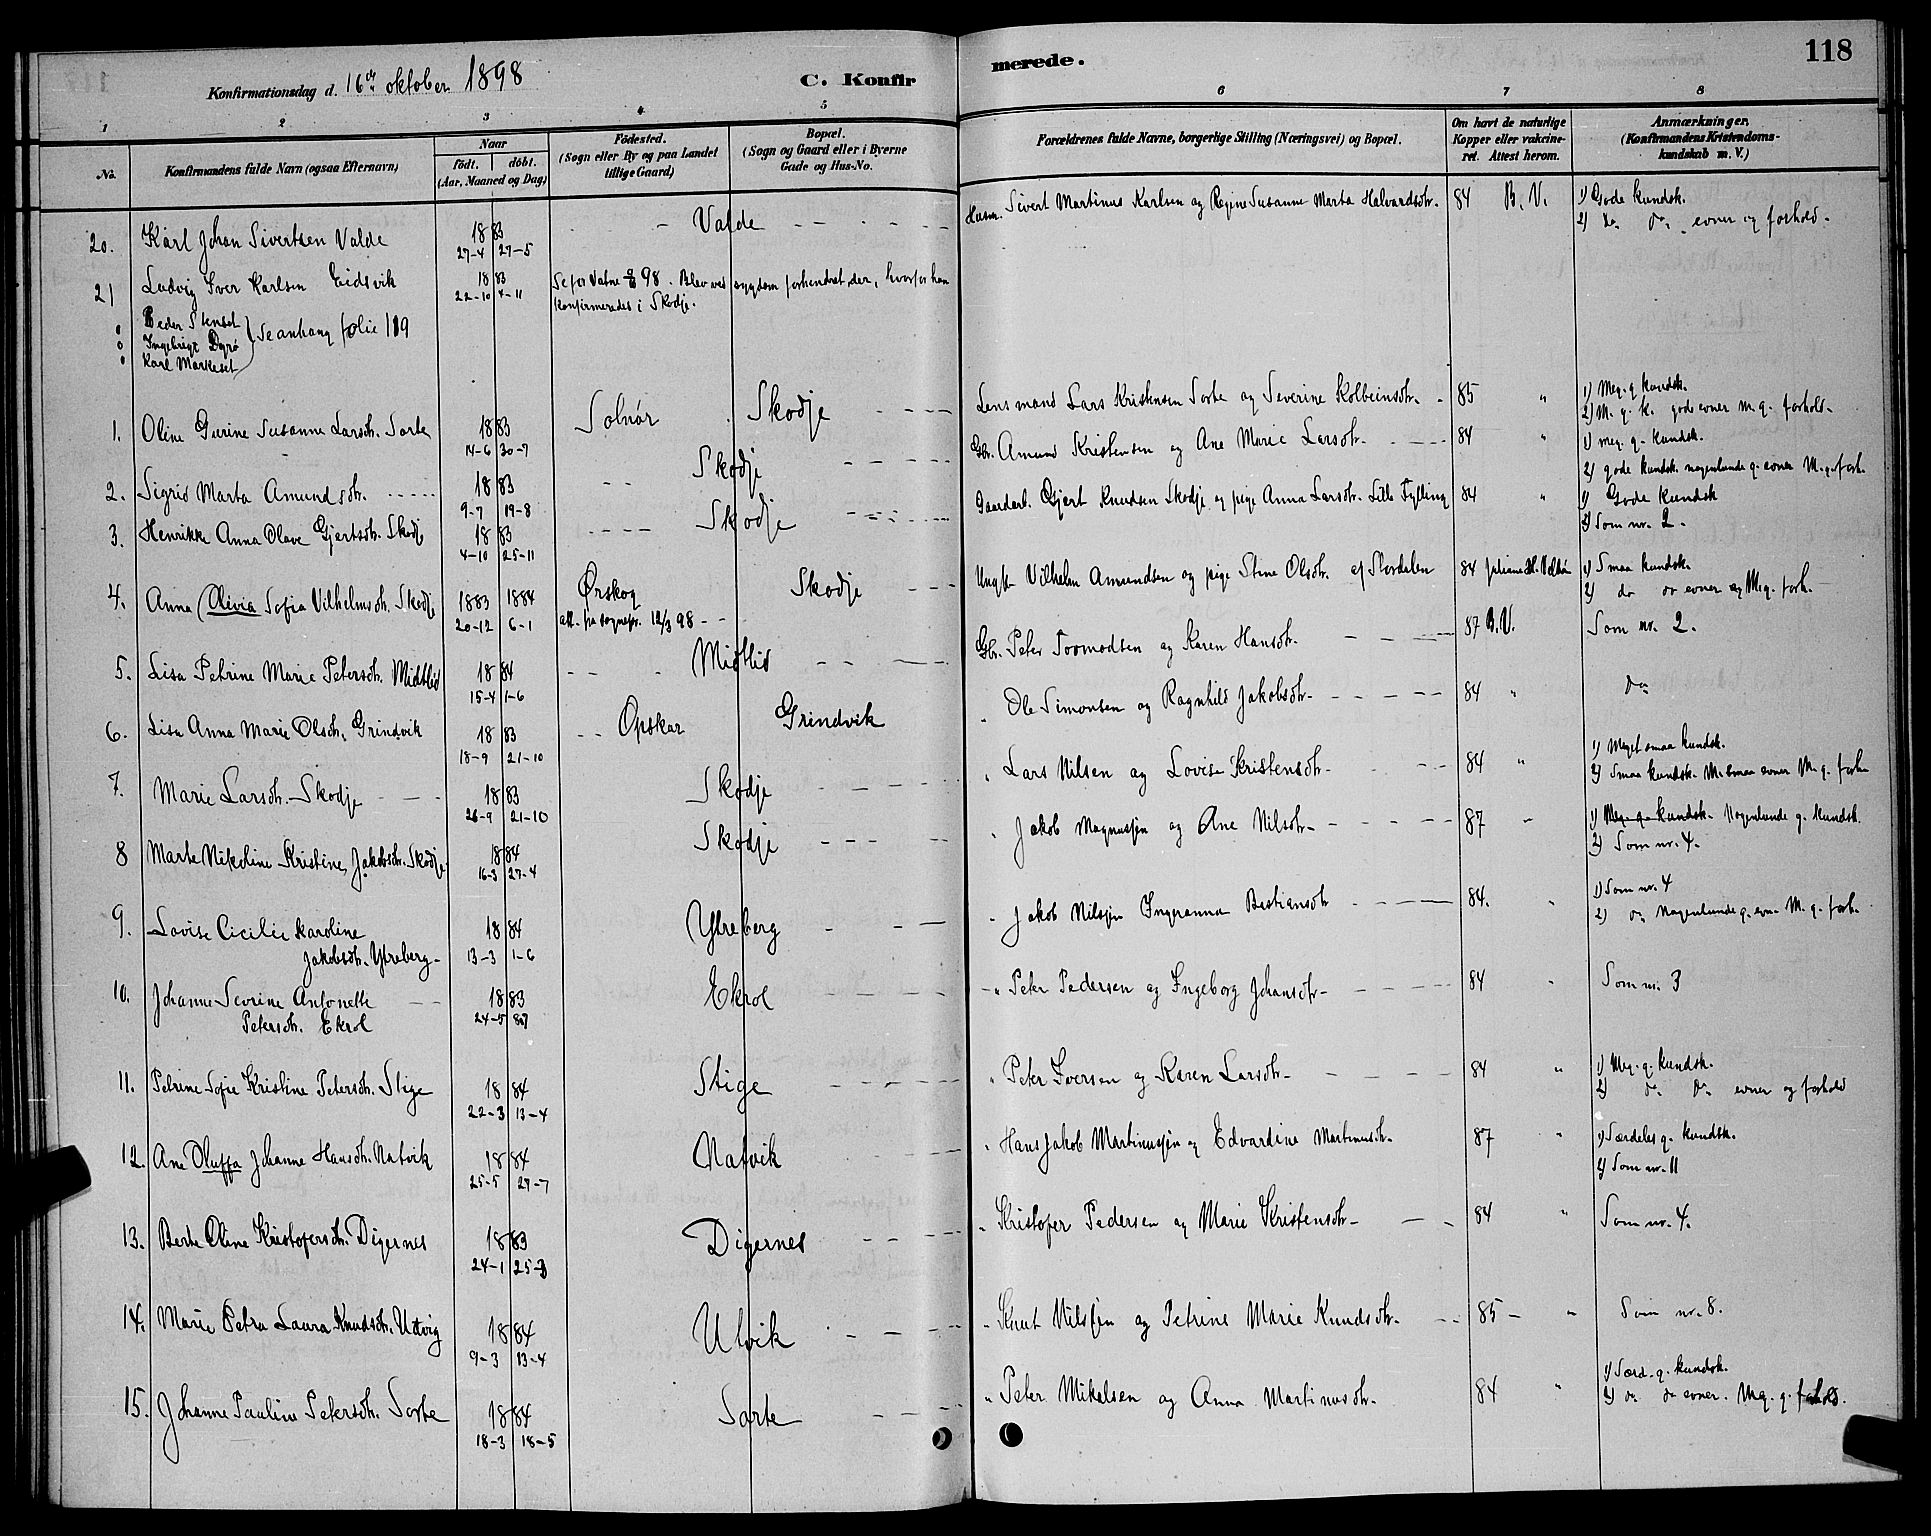 118
Konfirmationsdag d. 16de oktober 1898
C. Konfir merede.
1 2 3 4 5 6 7 8
No.
Konfirmandens fulde Navn (ogsaa Efternavn)
Naar
födt. döbt.
(Aar, Maaned og Dag)
Födested.
(Sogn eller By og paa Landet
tillige Gaard)
Bopæl.
(Sogn og Gaard eller i Byerne
Gade og Hus-No.
Forældrenes fulde Navne, borgerlige Stilling (Næringsvei) og Bopæl.
Om havt de naturlige
Kopper eller vakcine-
ret. Attest herom.
Anmærkninger.
(Konfirmandens Kristendoms-
kundskab m. V.)
20. Karl Johan Sivertsen Valde 1883 27-4 27-5 Valde Husm. Sivert Martinus Karlsen og Regine Susanne Marta Halvardsdtr. 84 B. V. 1) Gode kundsk.
2) do. do. evner og forhold.
21 Ludvig Iver Karlsen Eidsvik 1883 22-10 4-11 Se for Vatne 98. Blev ved sygdom forhindret der, hvorfor han
konfirmeredes i Skodje.
Peder Stenset
Ingebrigt Dyrö
Karl Markeset
Se anhang folie 119
1. Oline Gurine Susanne Larsdtr. Sorte 1883 14-6 30-7 Solnör Skodje Lensmand Lars Kristensen Sorte og Severine Kolbeinsdtr. 85 " 1) Meg. g. kundsk.
2) M. g. k. gode evner m. g. forhold.
2. Sigrid Marta Amundsdtr. 1883 9-7 19-8 Skodje Gbr. Amund Kristensen og Ane Marie Larsdtr. 84 " 1) meg. g. kundsk.
2) gode kundsk. nogenlunde g. evner M. g. forh.
3. Henrikke Anna Olave Gjertsdtr. Skodje 1883 4-10 25-11 Skodje Gaardarb. Gjert Knudsen Skodje og pige Anna Larsdtr. Lille Fylling 84 " 1) Gode kundsk
2) Som nr. 2.
4. Anna (Olivia) Sofia Vilhelmsdtr. Skodje 1883 1884 20-12 6-1 Ørskog
att. fra sognepr. 12/3 98 Skodje Ungk. Vilhelm Amundsen og pige Stine Olsdtr. af Stordalen 84 1) Smaa kundsk.
2) do do evner og M. g. forh.
5. Lisa Petrine Marie Petersdtr. Midtlid 1884 15-4 1-6 Midtlid Gbr. Peter Tormodsen og Karen Hansdtr. 87 B. V. Som nr. 2.
6. Lisa Anna Marie Olsdtr. Grindvik 1883 18-9 21-10 Opskar Grindvik " Ole Simonsen og Ragnhild Jakobsdtr. 84 " do
7. Marie Larsdtr. Skodje 1883 26-9 21-10 Skodje " Lars Nilsen og Lovise Kristensdtr. 84 " 1) Meget smaa kundsk.
2) Smaa kundsk. M. smaa evner M. g. forh
8 Marte Nikoline Kristine Jakobsdtr. Skodje 1884 16-3 27-4 Skodje " Jakob Magnussen og Ane Nilsdtr. 87 " 1) Meg. g. kundsk. Nogenlunde g. kundsk.
2) Som nr. 4.
9. Lovise Cicilie Karoline
Jakobsdtr. Ytreberg 1884 13-3 1-6 Ytreberg " Jakob Nilsen Ingeranna Bastiansdtr 84. " 1) Som nr. 4
2) do Nogenlunde g. evn. M. g. forh.
10. Johanne Severine Antonette
Petersdtr. Ekrol 1883 24-5 Ekrol " Peter Pedersen og Ingeborg Johansdtr. 84 " Som nr. 3
11. Petrine Sofie Kristine Petersdtr. Stige 1884 22-3 13-4 Stige " Peter Iversen og Karen Larsdtr. 84 " 1) Meg. g. kundsk.
2) do. do. evner og forhold
12. Ane Oluffa Johanne Hansdtr. Natvik 1884 25-5 27-7 Natvik " Hans Jakob Martinussen og Edvardine Martinusdtr. 87 " 1) Særdeles g. kundsk.
2) Som nr. 11
13. Berte Oline Kristofersdtr. Digernes 1883 24-1 25-3 Digernes " Kristofer Pedersen og Marie Kristensdtr. 84 " Som nr. 4.
14. Marie Petra Laura Knudsdtr. Utvig 1884 9-3 13-4 Utvik " Knut Nilssen og Petrine Marie Knudsdtr. 85 " Som nr. 8.
15. Johanne Pauline Petersdtr. Sorte 1884 18-3 18-5 Sorte " Peter Mikalsen og Anna Martinusdtr. 84 " 1) Særd. g. kundsk.
2) do. do evner. Meg. g. forhold.